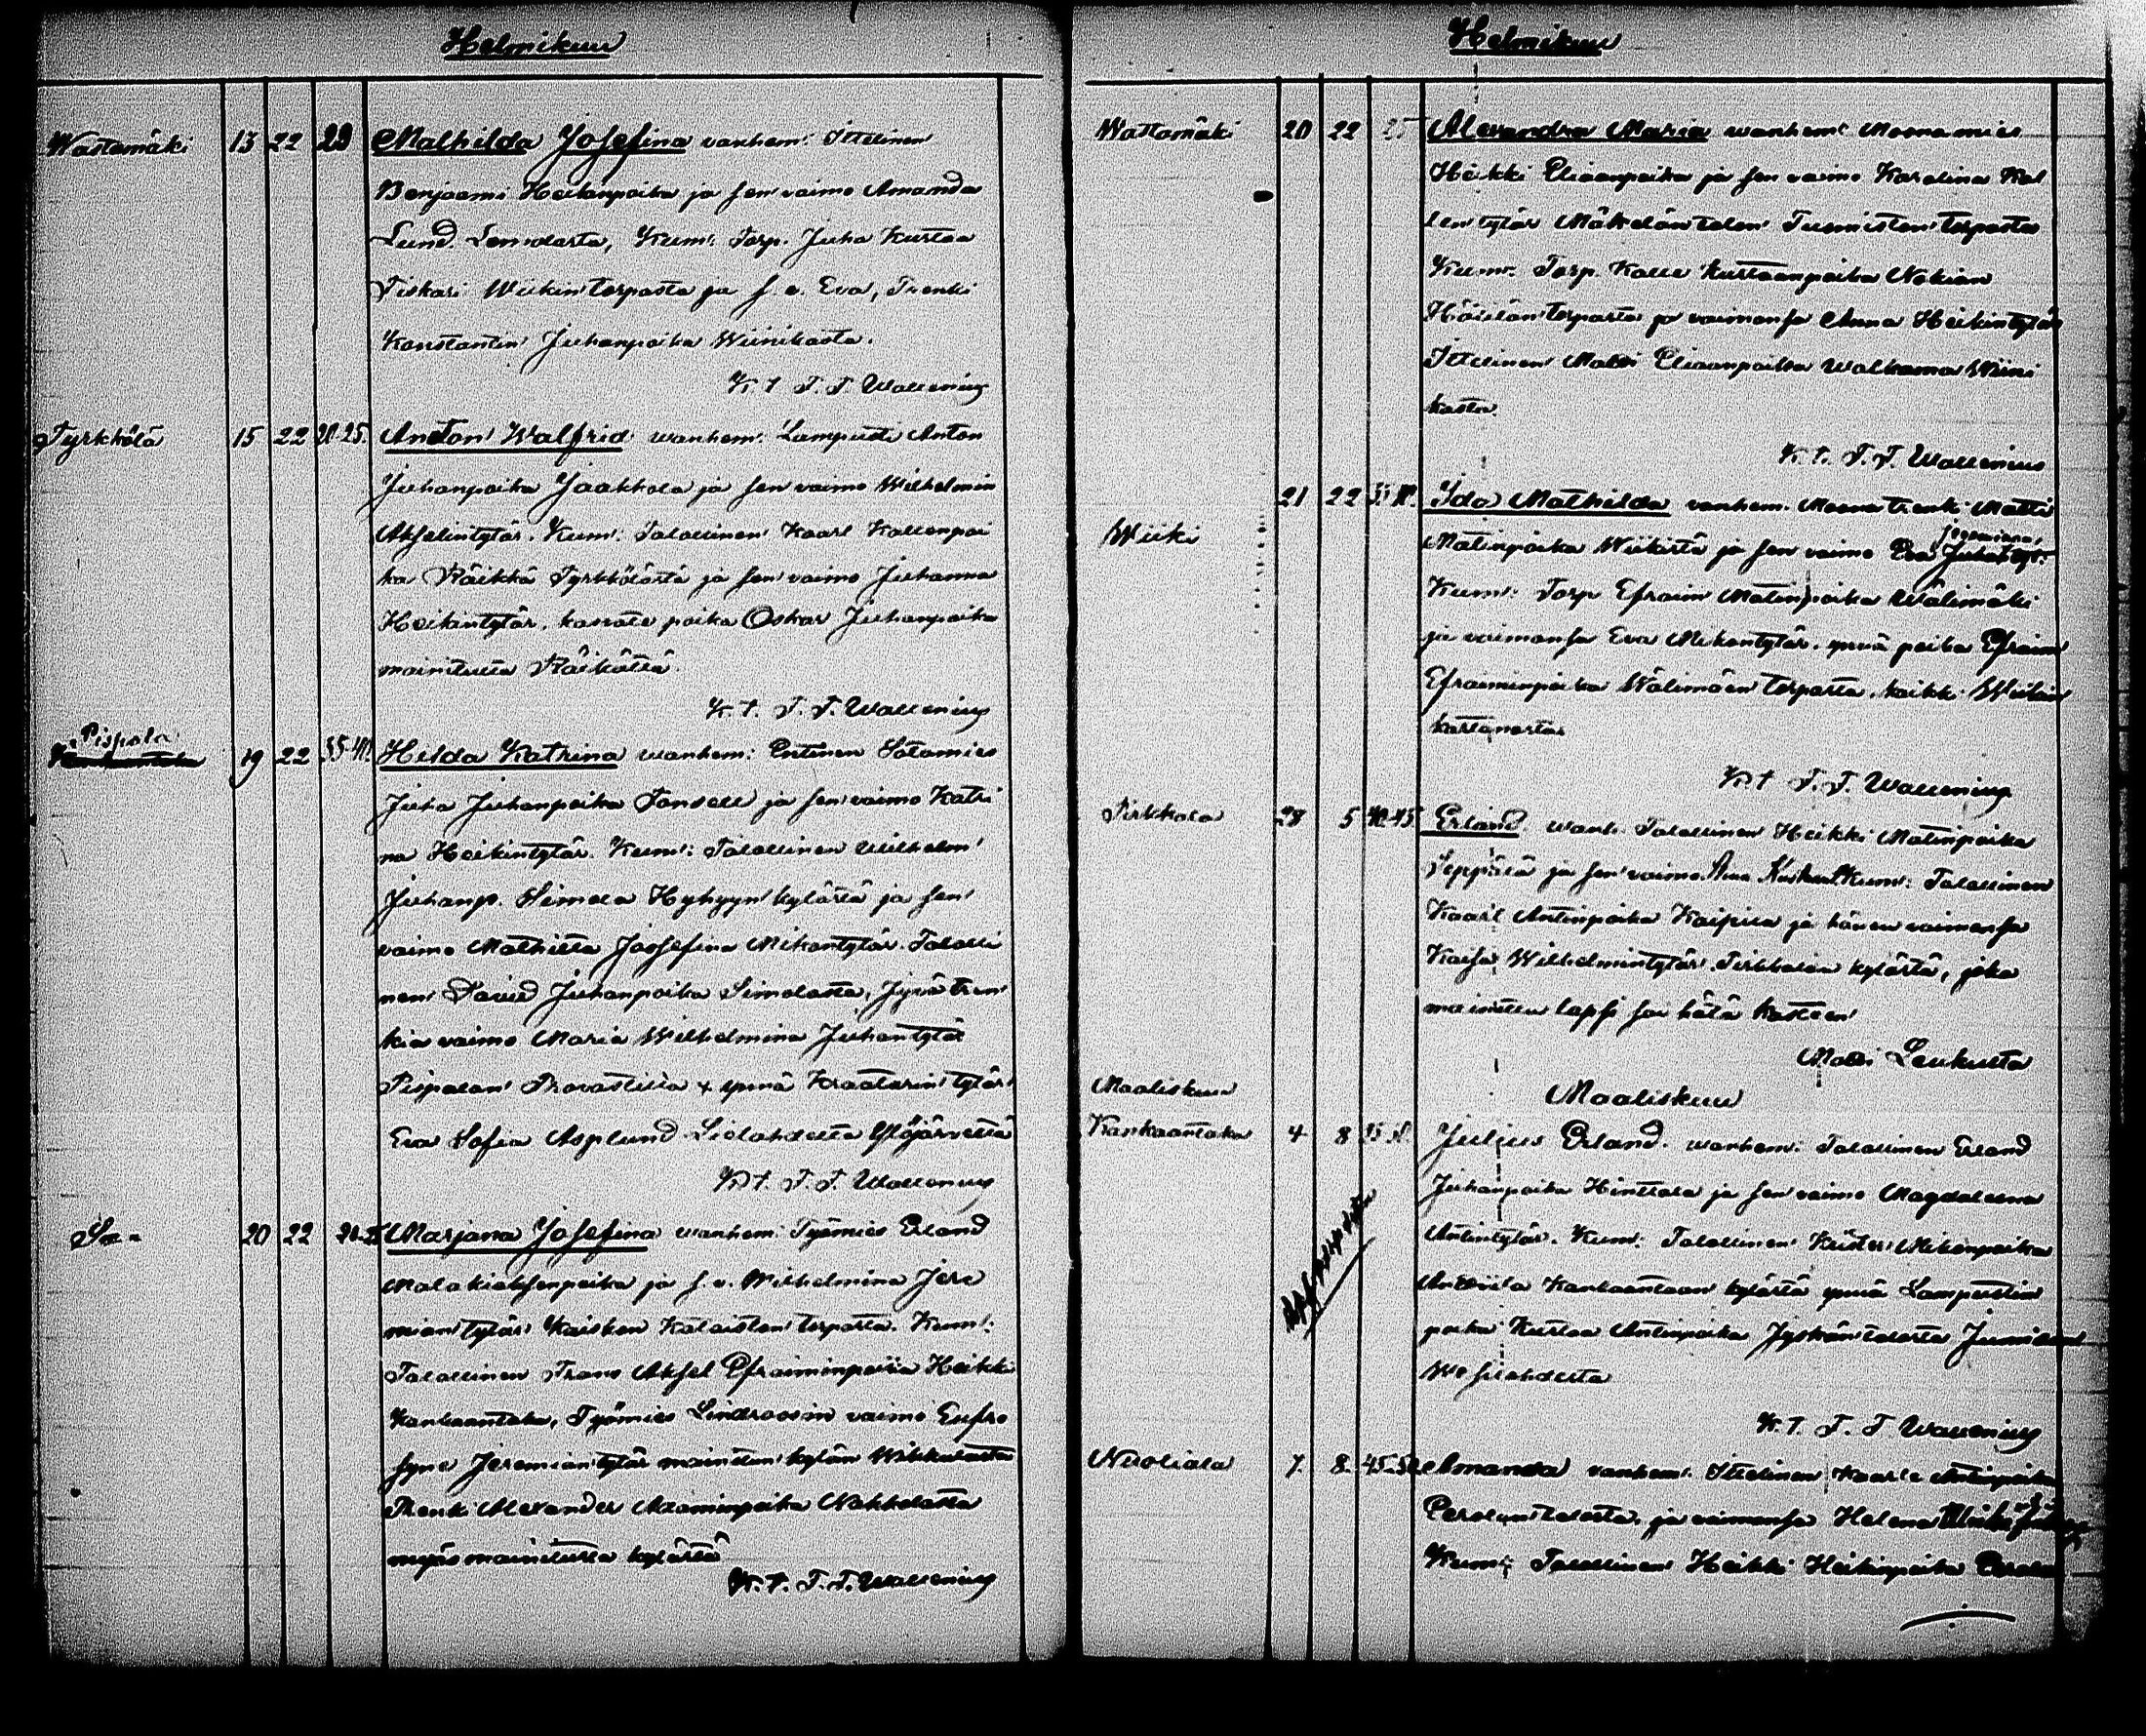 Helmikuu
Wastamäki 13 22 29 Mathilda Josefina vanhem: Ittelinen
Benjaami Heikinpoika ja sen vaimo Amanda
Lund. Kum: Torp. Juha Kustaa
Tiskari Wiikin torpasta ja s. v. Eva, Trenki
Konstantin Juhanpoika Wiinikasta.
K. t. F. F. Wallenius
Tyrkkölä 15 22 20-25. Anton Walfrid wanhem: Lampuoti Anton
Juhanpoika Jaakkola ja sen vaimo Wilhelmin
Akselintytär. Kum: Talollinen Kaarl Kallenpoi
ka Räikkä Tyrkkölästä ja sen vaimo Juhanna
Heikintytär, kasvate poika Oskar Juhanpoika
mainitusta Räikästä.
K. t. F. F. Wallenius
Pispala 19 22 35-40. Hilda Katrina wanhem: Entinen Sotamies
Juha Juhanpoika ja sen vaimo Katri
na Heikintytär. Kum: Talollinen Wilhelm
Juhanp. Simola Hyhkyn kylästä ja sen
vaimo Mathilda Josefina Mikontytär. Talolli
nen David Juhanpoika Simolasta, Jyvä tren
kin vaimo Maria Wilhelmina Juhantytär
Pispalan Provastilta & ynnä Kraatarin tytär
Eva Sofia Asplund Lielahdesta Ylöjärveltä
K. t. F. F. Wallenius
20 22 Marjana Josefina wanhem: Työmies Erland
Malakiaksenpoika ja s. v. Wilhelmina Jere
miantytär Kaisken torpasta. Kum:
Talollinen Frans Aksel Efraiminpoika Heikki
Kankaantaka, Työmies Lindroosin vaimo Eufro
syne Jeremiantytär mainitun kylän
Trenki Alexander
myös mainitusta kylästä
K. t. F. F. Wallenius
Helmikuu
Wastamäki 20 22 25 Alexandra Maria wanhem: Maanamies
Heikki Eliaanpoika ja sen vaimo Karolina Kal
lentytär Mäkelän talon Tuomiston torpasta
Kum: Torp. Kalle Kustaanpoika Nokian
torpasta ja vaimonsa Anna Heikintytär
Ittelinen Matti Eliaanpoika Walkama Wiini
kasta.
K. t. F. F. Wallenius
Wiiki 21 22 35-40. Ida Mathilda vanhem. Maana trenki Matti
Matinpoika Wiikistä ja sen vaimo Eva
Kum: Torp Efraim Matinpoika Wälimäki
ja vaimonsa Eva Mikontytär, ynnä poika Efraim
Efraiminpoika Wälimäen torpasta, kaikki Wiikin
kartanosta
K. t. F. F. Wallenius
Pirkkala 28 5 40-45. Erland. wanh. Talollinen Heikki Matinpoika
Seppälä ja sen vaimo Kum: Talollinen
Kaarl Antinpoika Kaipila ja hänen vaimonsa
Kaisa Wilhelmintytär Pirkkalan kylästä, joka
mainittu lapsi sai hätä kasteen
Matti Leukusta
Maaliskuu
Maaliskuu
Kankaantaka 4 8 Julius Erland. wanhem: Talollinen Erland
Juhanpoika Hinttala ja sen vaimo Magdaleena
Antintytär. Kum: Talollinen Krister Mikonpoika
Anttila Kankaantaan kylästä ynnä Lampuotin
poika Kustaa Antinpoika Jyskän talosta
Wesilahdesta
K. t. F. F. Wallenius
Nuoliala 7. 8. 45-50. Amanda vanhem: Ittelinen Kaarle Antinpoika
Perolan talosta, ja vaimonsa Helena
Kum: Talollinen Heikki Heikinpoika Perola